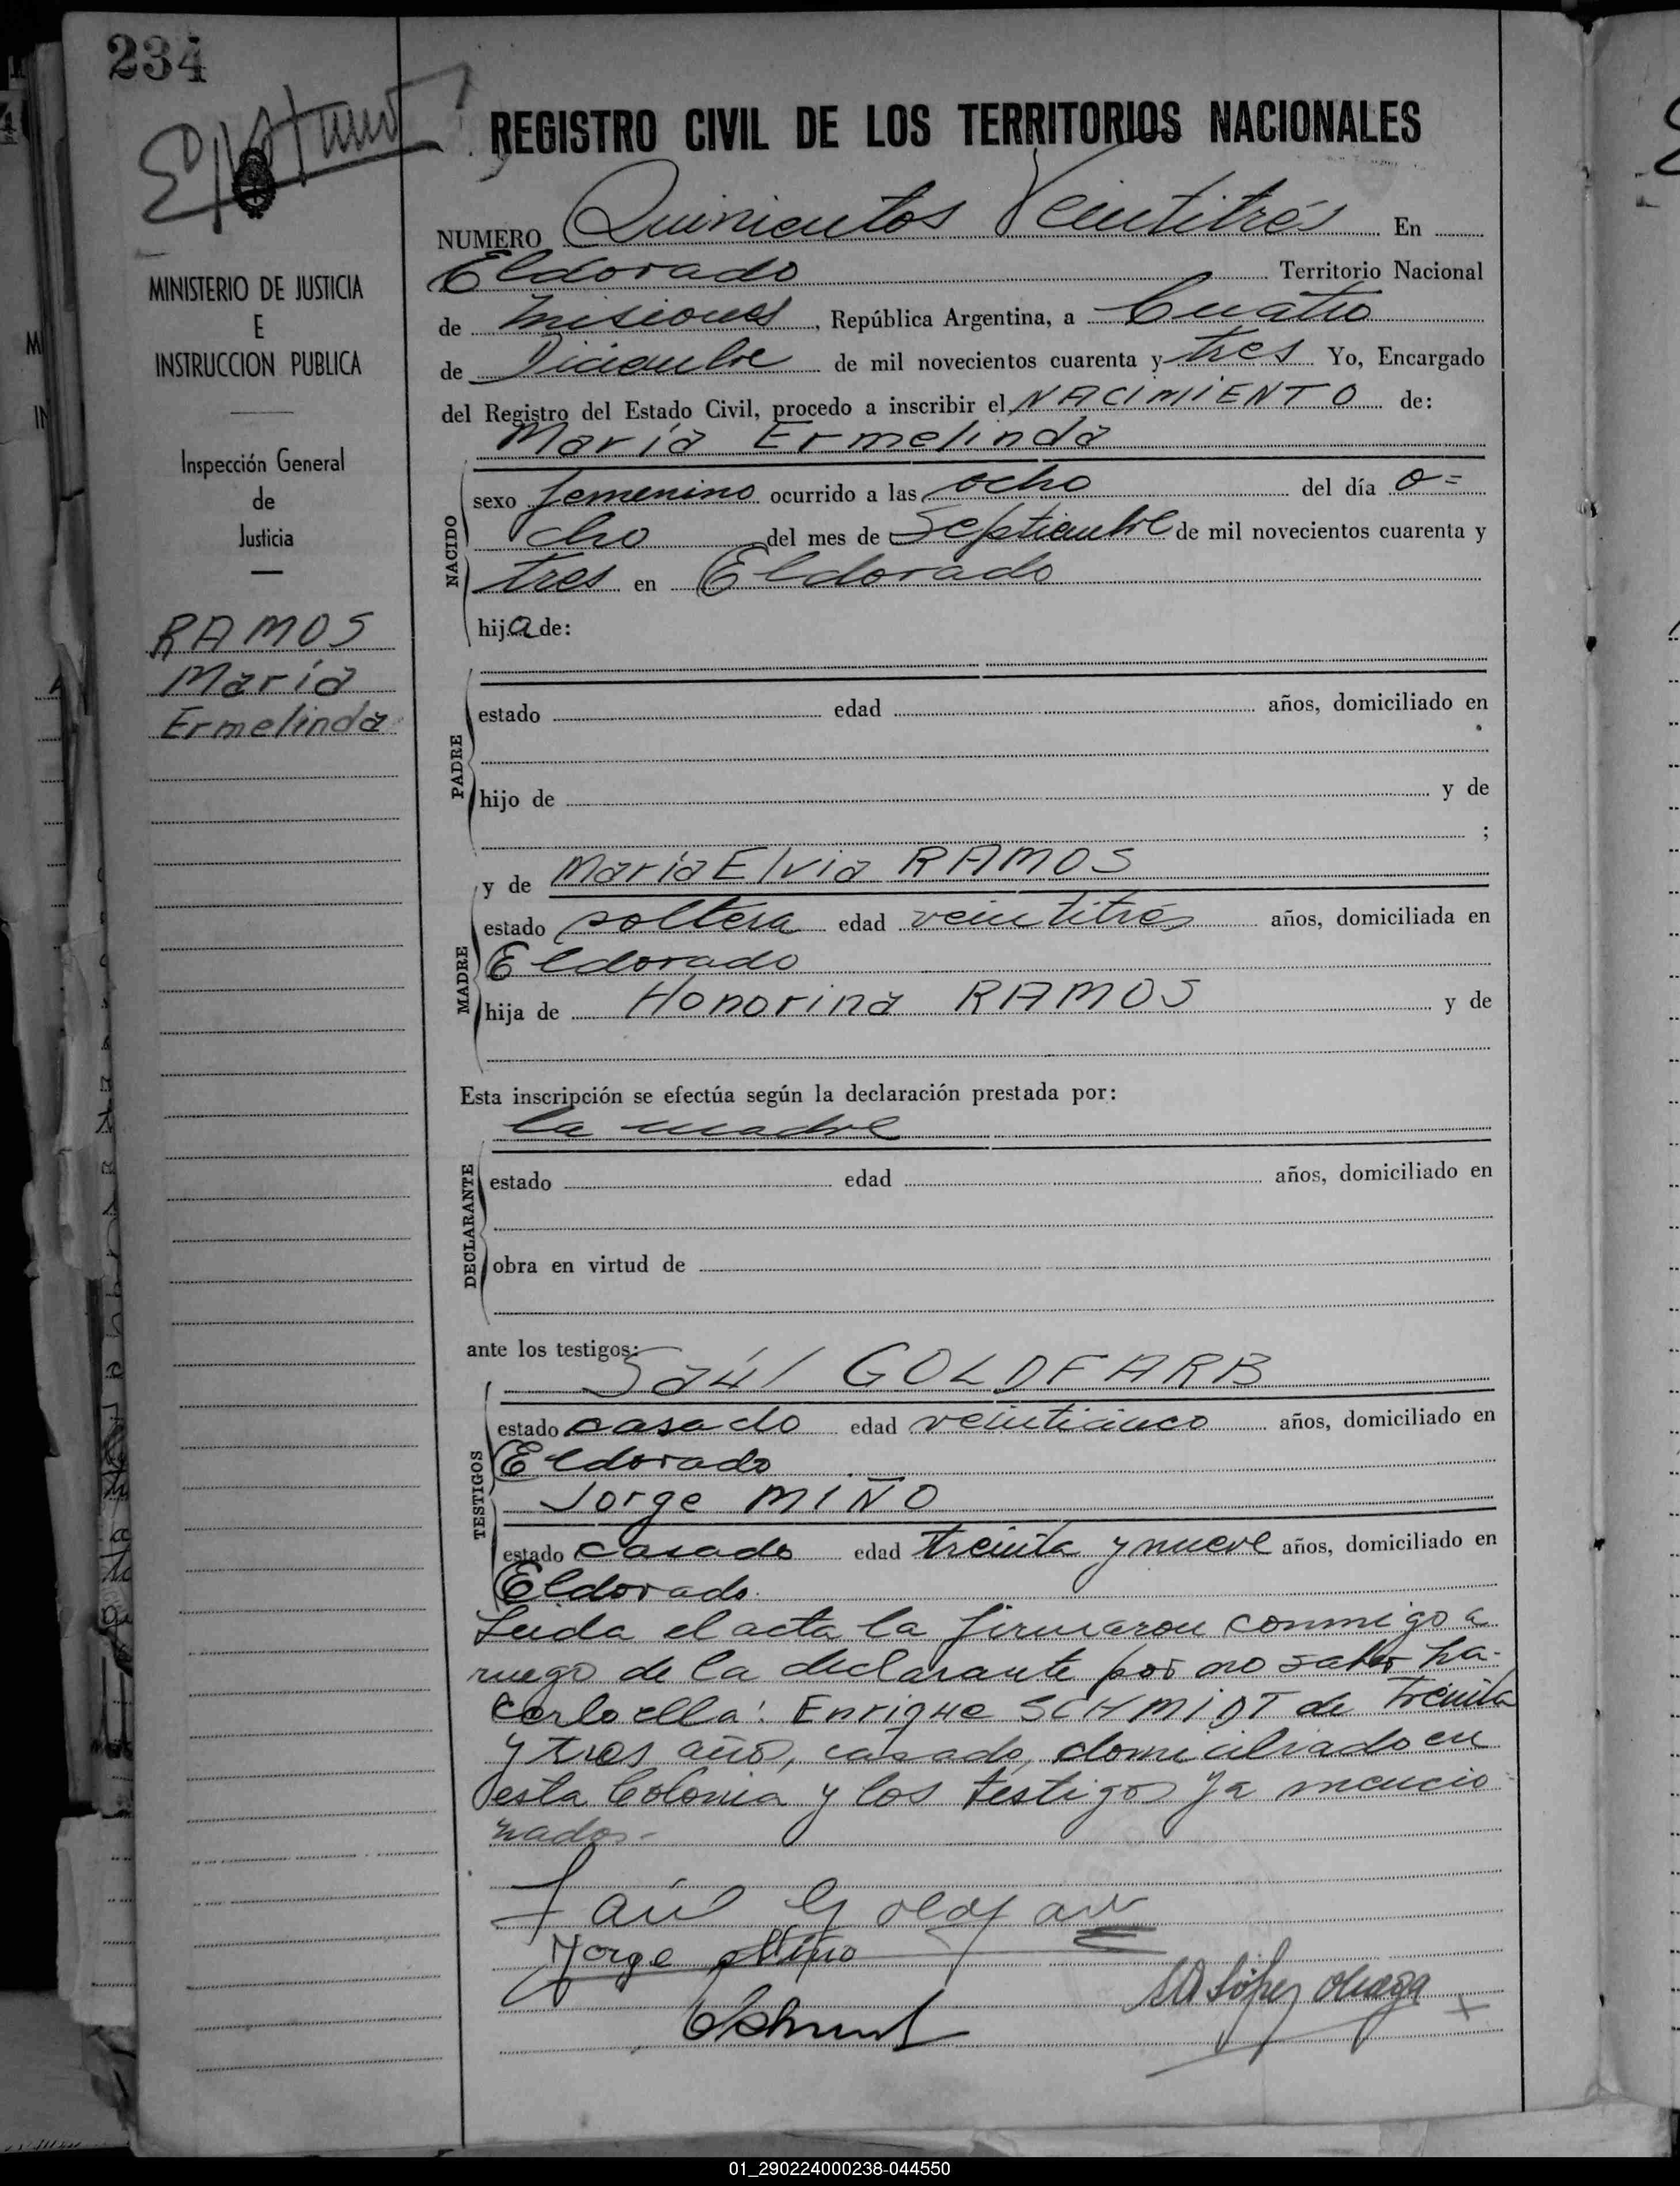 234
REGISTRO CIVIL DE LOS TERRITORIOS NACIONALES
MINISTERIO DE JUSTICIA
E
INSTRUCCION PUBLICA
Inspección General
de
Justicia
RAMOS
María
Ermelinda
NUMERO Quinientos Veintitrés En
Eldorado Territorio Nacional
de Misiones, República Argentina, a Cuatro
de Diciembre de mil novecientos cuarenta y tres Yo, Encargado
del Registro del Estado Civil, procedo a inscribir el NACIMIENTO de:
María Ermelinda
NACIDO
sexo femenino ocurrido a las ocho del día o=
cho del mes de Septiembre de mil novecientos cuarenta y
tres en Eldorado
hija de:
PADRE
estado edad años, domiciliado en
hijo de y de
;
y de María Elvia RAMOS
MADRE
estado soltera edad veintitrés años, domiciliada en
Eldorado
hija de Honorina RAMOS y de
Esta inscripción se efectúa según la declaración prestada por:
la madre
DECLARANTE
estado edad años, domiciliado en
obra en virtud de
ante los testigos:
Saúl GOLDFARB
TESTIGOS
estado casado edad veinticinco años, domiciliado en
Eldorado
Jorge MIÑO
estado casado edad treinta y nueve años, domiciliado en
Eldorado.
Leida el acta la firmaron conmigo a
ruego de la declarante por no saber ha-
cerlo ella: Enrique SCHMIDT de treinta
y tres años, casado, domiciliado en
esta Colonia y los testigos ya mencio=
nados.-
Saúl Goldfarb
Jorge Miño
López
01_290224000238-044550